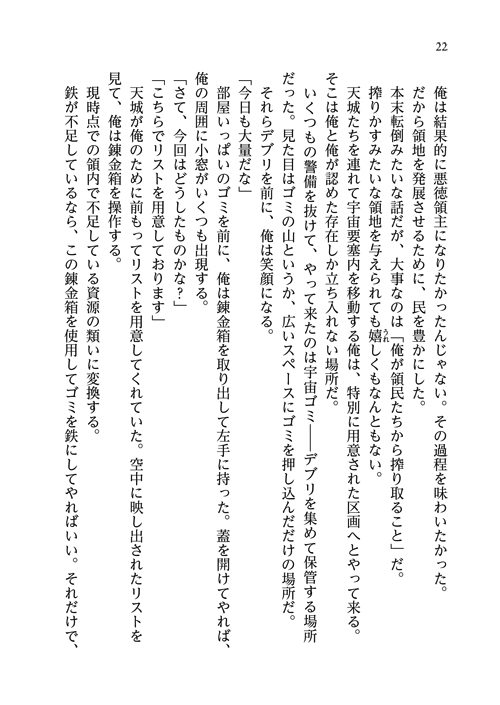 22
俺は結果的に悪徳領主になりたかったんじゃない。その過程を味わいたかった。
だから領地を発展させるために、民を豊かにした。
本末転倒みたいな話だが、大事なのは「俺が領民たちから搾り取ること」だ。
搾りかすみたいな領地を与えられても嬉しくもなんともない。
うれ
天城たちを連れて宇宙要塞内を移動する俺は、特別に用意された区画へとやって来る。
そこは俺と俺が認めた存在しか立ち入れない場所だ。
いくつもの警備を抜けて、やって来たのは宇宙ゴミ――デブリを集めて保管する場所
だった。見た目はゴミの山というか、広いスペースにゴミを押し込んだだけの場所だ。
それらデブリを前に、俺は笑顔になる。
「今日も大量だな」
部屋いっぱいのゴミを前に、俺は錬金箱を取り出して左手に持った。蓋を開けてやれば、
俺の周囲に小窓がいくつも出現する。
「さて、今回はどうしたものかな？」
「こちらでリストを用意しております」
天城が俺のために前もってリストを用意してくれていた。空中に映し出されたリストを
見て、俺は錬金箱を操作する。
現時点での領内で不足している資源の類いに変換する。
鉄が不足しているなら、この錬金箱を使用してゴミを鉄にしてやればいい。それだけで、